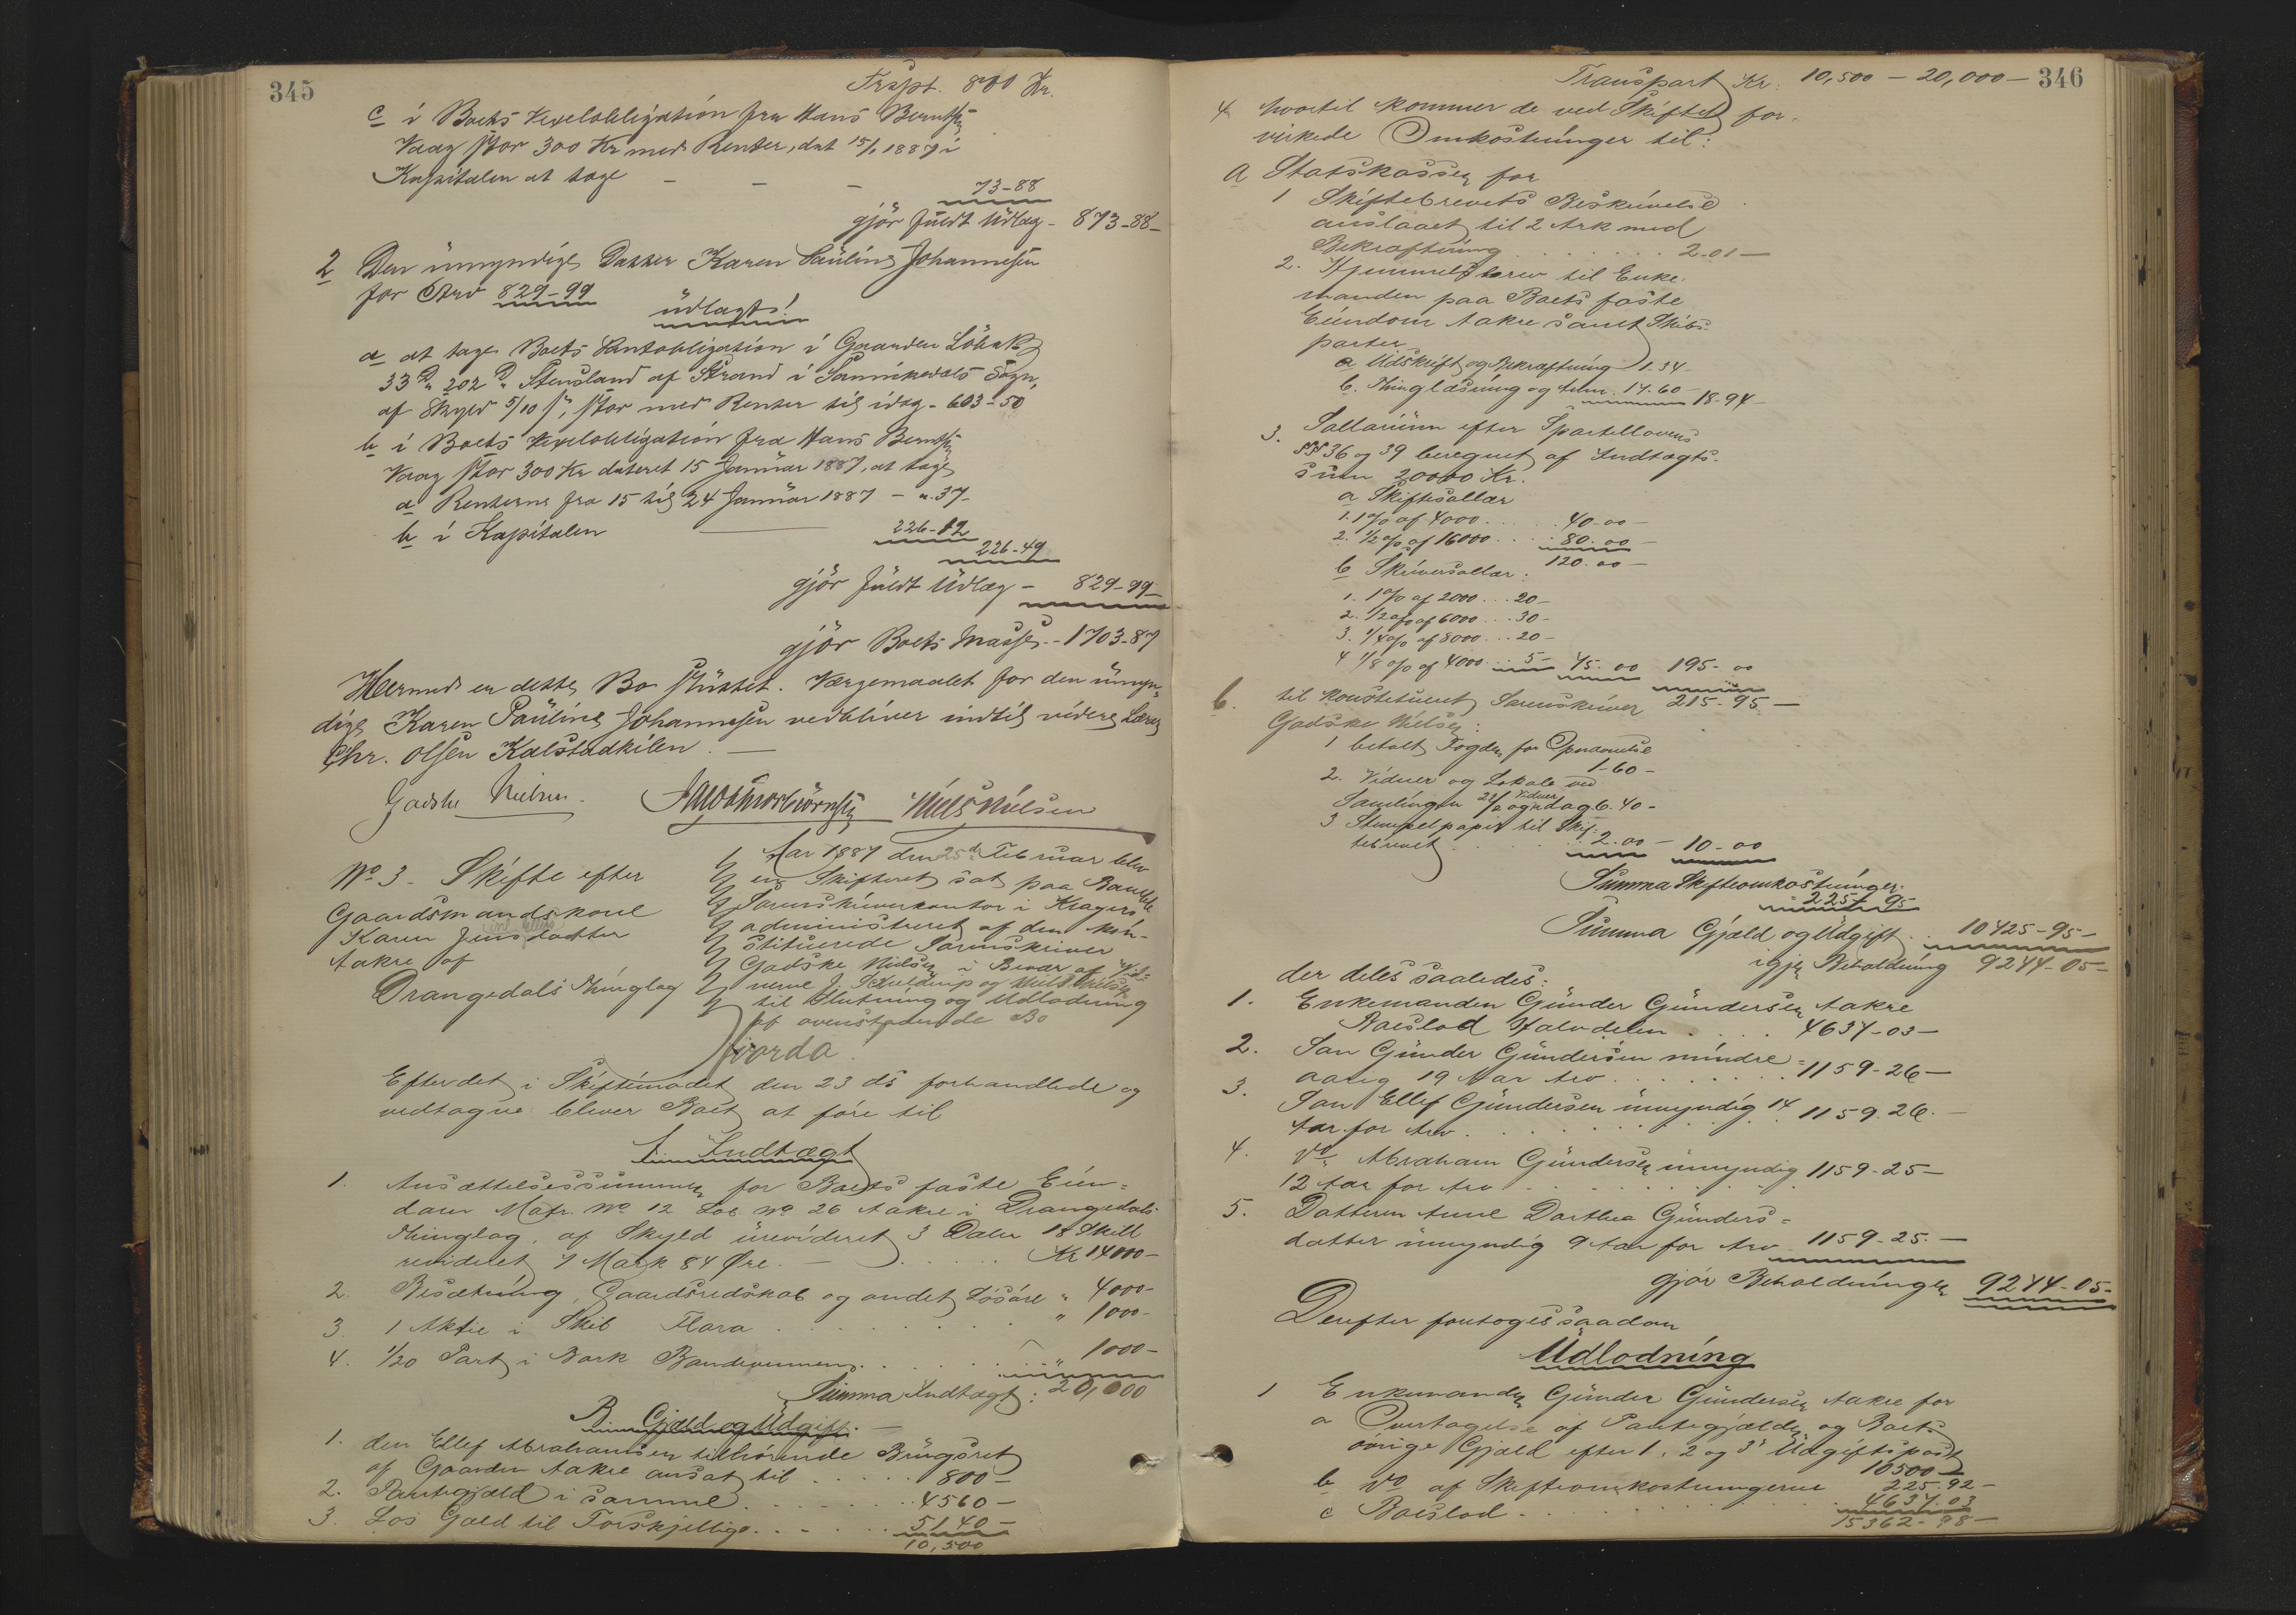 345
Trspt. 800 Kr.
c i Boets Vexelobligation fra Hans Berntsen
Vaag stor 300 Kr med Renter, dat 15/1 1887 i
Kapitalen at tage - - - 73-88
gjör fuldt Udlæg - 873-88-
2 Den umyndige Datter Karen Pauline Johannesen
for Arv 829-99
udlagts!
a at tage Boets Pantobligation i Gaarden Löbnk
33 202 Stensland af Strand i Sannikedals Sogn,
af Skyld 5/10 stor med Renter til idag - 603-50
b i Boets Vexelobligation fra Hans Berntsen
Vaag stor 300 Kr dateret 15 Januar 1887, at tage
a Renterne fra 15 til 24 Januar 1887 - ". 37-
b i Kapitalen 226-12
226-49
gjör fuldt Udlæg - 829-99-
gjör Boets Masse - 1703-87
Hermed er dette Bo sluttet. Værgemaalet for den umyn-
dige Karen Pauline Johannesen vedbliver indtil videre Lærer
Chr. Olsen Kalstadkilen. —
Godske Nielsen. Niels Nielsen
No 3 - Skifte efter
Gaardsmandskone
Karen Jensdatter
Aakre af
Drangedals Thinglag
Aar 1887 den 25de Februar blev
en Skifteret sat paa Bamble
Sorenskriverkontor i Kragerö
administreret af den kon-
stituerede Sorenskriver
Godske Nielsen i Bevær af Vid-
nerne J. Kuldrup og Niels Nielsen
til Slutning og Udlodning
af ovenstaaende Bo
hvorda
Efter det i Skiftemödet den 23 ds forhandlede og
vedtagne bliver Boet at före til
A. Indtægt
1. Ansættelsessummen for Boets faste Eien-
dom Matr. No 12 Löb. No 26 Aakre i Drangedals
Thinglag, af Skyld urevideret 3 Daler 18 Skill
revideret 7 Mark 84 Øre. — Kr 14000-
2. Besætning, Gaardsredskab og andet Lösöre " 4000-
3. 1 Aktie i Skib Flora " 1000-
4. 1/20 Part i Bark Bondevennen " 1000-
Summa Indtægt: 20,000
B. Gjæld og Udgift. —
1. den Ellef Abrahamsen tilhörende Bürgsret
af Gaarden Aakre ansat til 800-
2. Pantegjæld i samme 4560-
3. Lös Gjæld til Forskjellige 5140-
10,500
346
Transport Kr. 10,500 - 20,000 -
4 hvortil kommer de ved Skiftet for-
virkede Omkostninger til:
A Statskassen for
1 Skiftebrevets Beskrivelse
anslaaet til 2 Ark med
Bekræftning 2-01-
2. Hjemmelsbrev til Enke-
manden paa Boets faste
Eiendom Aakre samt Skibs-
parter
a Udskrift og Bekræftning 1.34-
b. Thinglæsning og 17.60- 18-94-
3. Sallarium efter Sportellovens
§§ 36 og 39 beregnet af Indtægts-
sum 20000 Kr.
a Skiftesallær
1. 1% af 4000 40-00-
2. 1/2 % af 16000 80.00-
120.00-
b Skriversallær:
1. 1% af 2000 20-
2. 1/2 % af 6000 30-
3. 1/4 % af 8000 20-
4 1/8 % af 4000 5- 75.00 195-00
215-95-
b. til konstitueret Sorenskriver
Godske Nielsen:
1 betalt Fogden for Opnævnelse
1-60-
2. Vidner og Lokale ved
Samlingen 24/2 og idag 6.40-
Vidner
3 Stempelpapir til Skif-
tebrevet 2.00 - 10-00
Summa Skifteomkostninger.
225- 95
Summa Gjæld og Udgift 10425-95-
igjen Beholdning 9274-05-
der deles saaledes:
1. Enkemanden Gunder Gundersen Aakre
Boeslod Halvdelen 4637-03-
2. Søn Gunder Gundersen mindre-
aarig 19 Aar Arv 1159-26-
3. Søn Ellef Gundersen umyndig 14
Aar for Arv 1159.26.-
4. Do Abraham Gundersen umyndig
12 Aar for Arv 1159-25-
5. Datteren Anne Dorthea Gunders-
datter umyndig 9 Aar for Arv 1159-25.-
gjör Beholdningen 9274-05-
Derefter foretoges saadan
Udlodning
1 Enkemanden Gunder Gundersen Aakre for
a Overtagelse af Pantegjælden og Boets
övrige Gjæld efter 1. 2 og 3' Udgiftspost
10500-
b Do af Skifteomkostningerne 225.92-
c Boeslod 4637.03
15362-98-